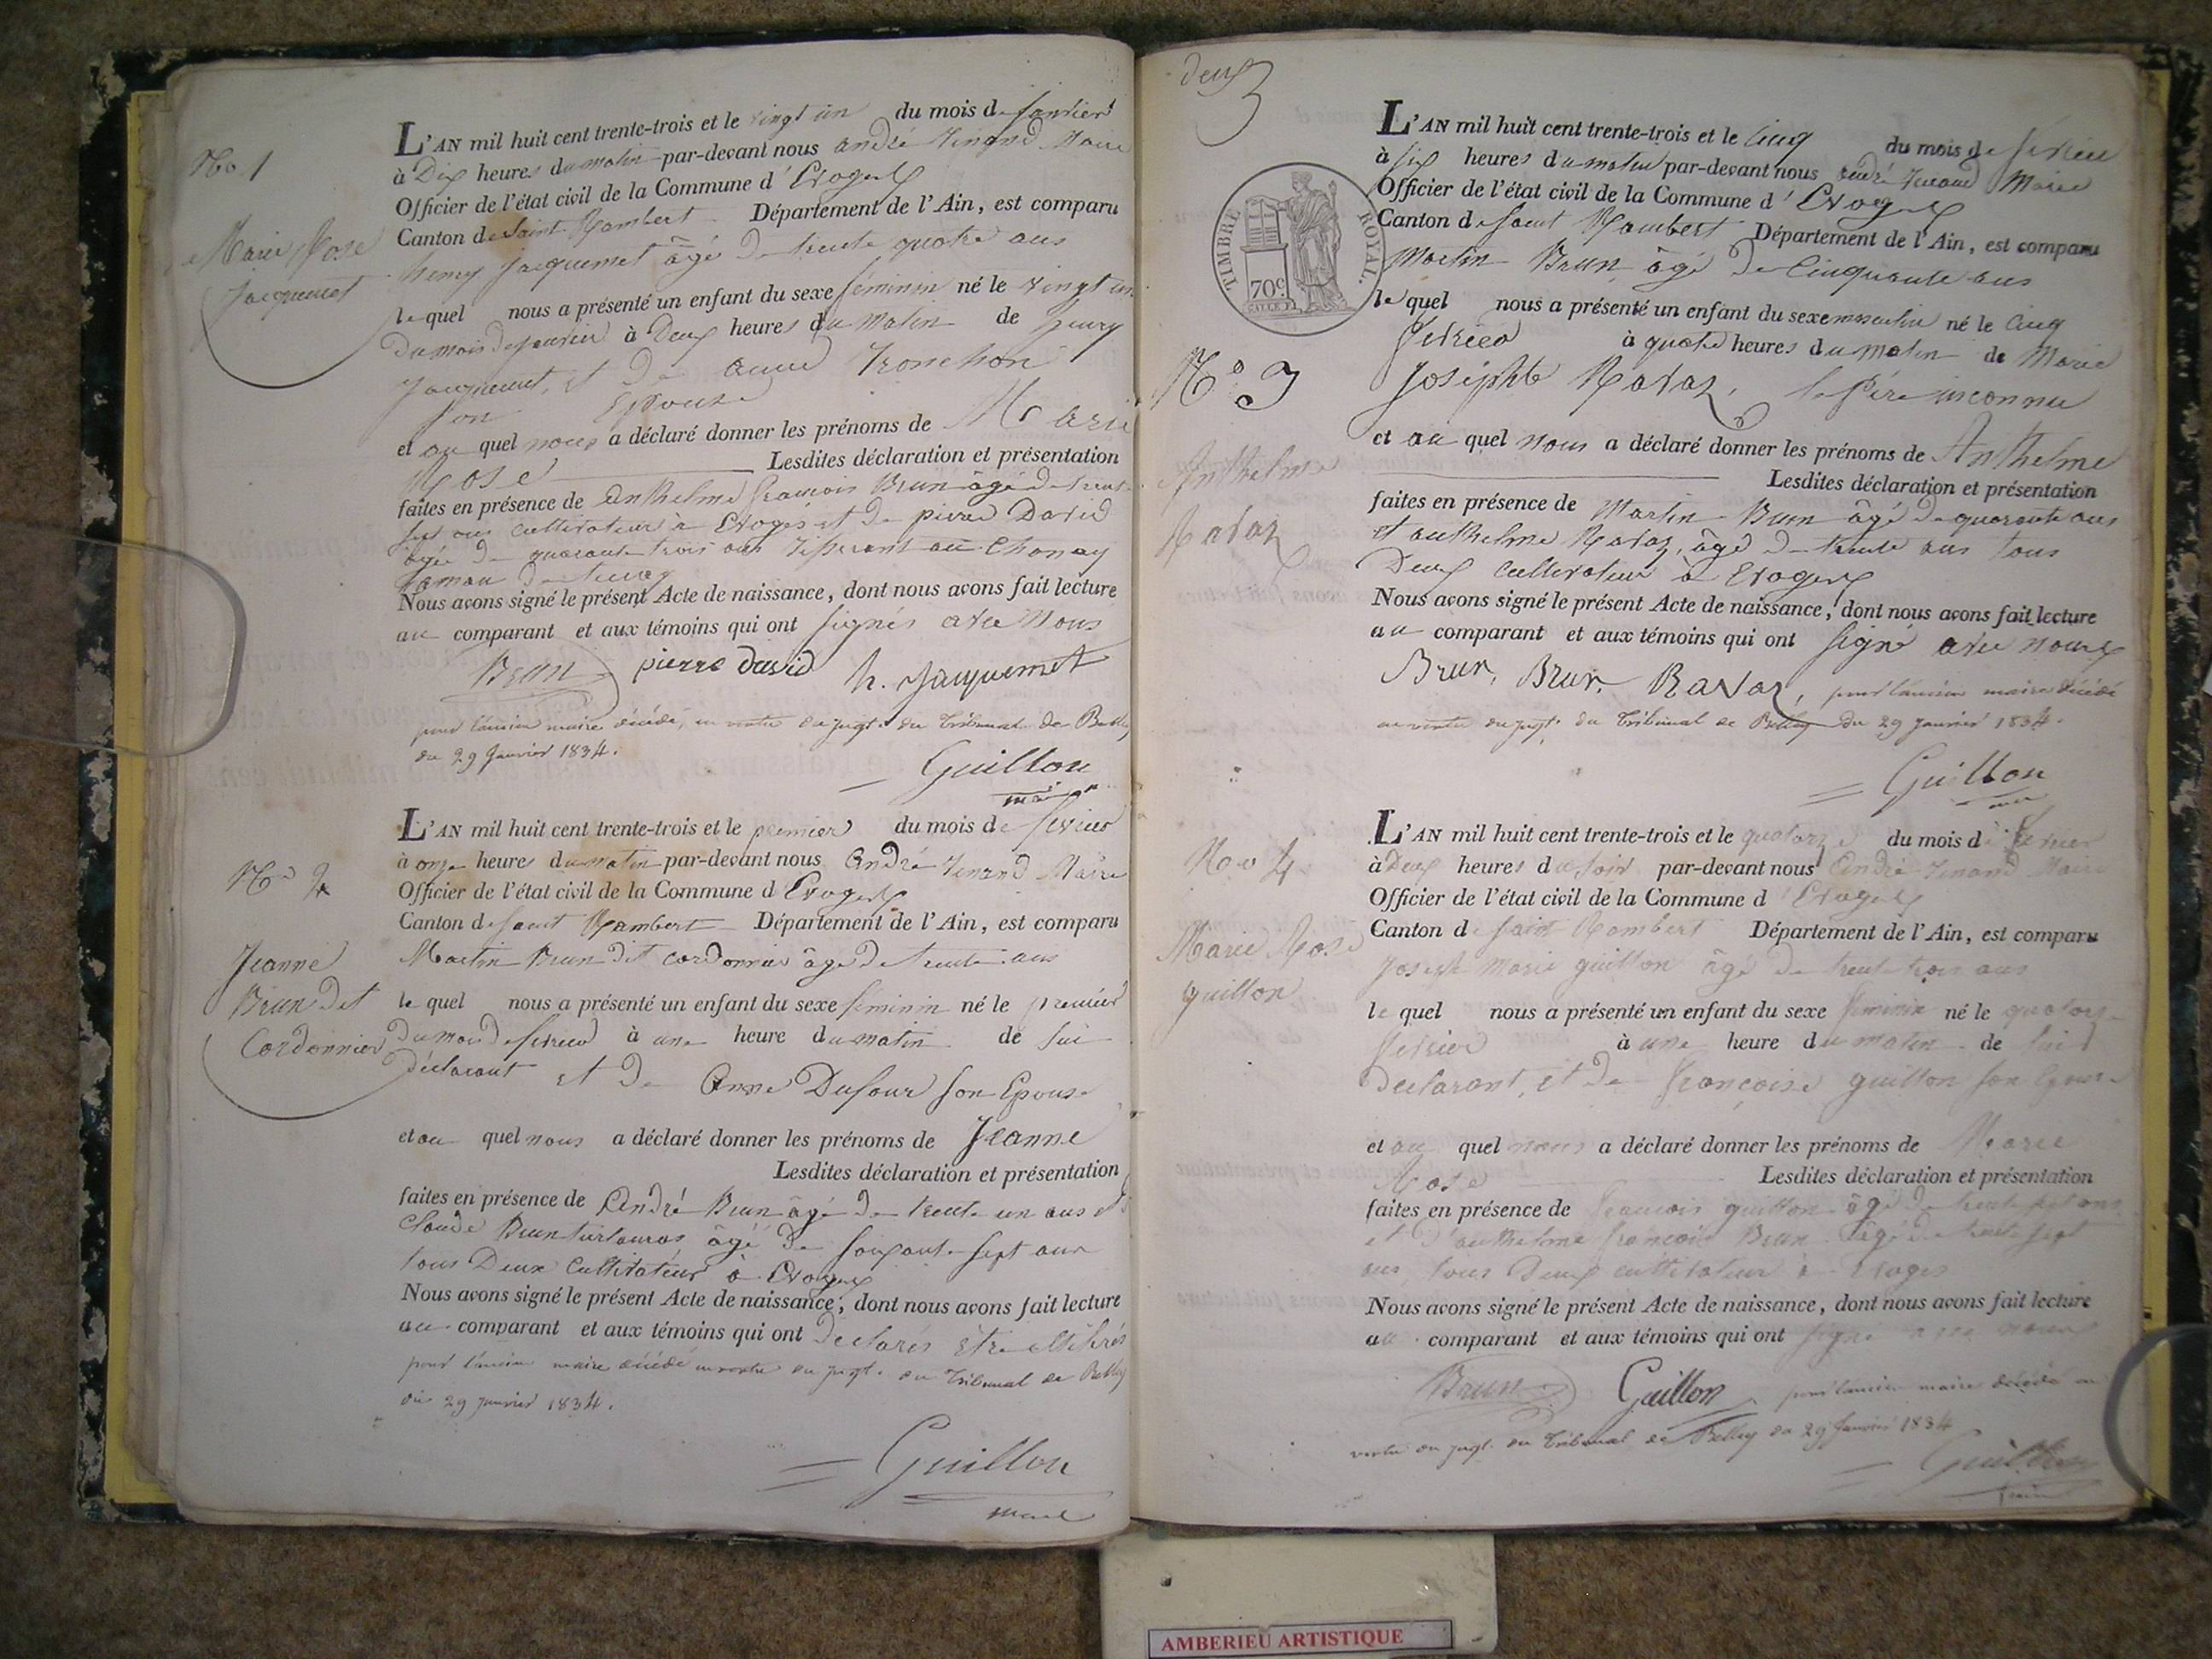 No. 1
Marie Rose
Jacquemet
L'AN mil huit cent trente-trois et le vingt un du mois de janvier
à Dix heures du matin par-devant nous andré Venand Maire
Officier de l'état civil de la Commune d'Evoges
Canton de Saint Rambert Département de l'Ain, est comparu
henry Jacquemet âgé de trente quatre ans
lequel nous a présenté un enfant du sexe féminin né le vingt un
du mois de janvier à Deux heures du Matin de henry
Jacquemet, et de anne Tronchon
son Epouse
et au quel nous a déclaré donner les prénoms de Marie
Rose Lesdites déclaration et présentation
faites en présence de anthelme francois Brun âgé de trente
sept ans cultivateur à Evoges et de pierre David
âgé de quarante trois ans Tisserant au Chonay
hamau de
Nous avons signé le présent Acte de naissance, dont nous avons fait lecture
au comparant et aux témoins qui ont signés avec Nous
Brun pierre david h. Jacquemet
pour l'ancien maire décédé, en vertu du jugt. du Tribunal de Belley
du 29 Janvier 1834.
Guillon
maire
No 2
Jeanne
Brun dit
Cordonnier
L'AN mil huit cent trente-trois et le premier du mois de fevrier
à onze heures du matin par-devant nous André Venand Maire
Officier de l'état civil de la Commune d Evoges
Canton de Saint Rambert Département de l'Ain, est comparu
Martin Brun dit cordonnier âgé de trente ans
le quel nous a présenté un enfant du sexe féminin né le premier
du mois de fevrier à une heure du matin de lui
déclarant et de Anne Dufour son Epouse
et au quel nous a déclaré donner les prénoms de Jeanne
Lesdites déclaration et présentation
faites en présence de André Brun âgé de trente un ans et
Claude Brun âgé de soixante sept ans
tous Deux Cultivateur à Evoges
Nous avons signé le présent Acte de naissance, dont nous avons fait lecture
au comparant et aux témoins qui ont declarés être
pour l'ancien maire décédé en vertu du jugt. du Tribunal de Belley
du 29 janvier 1834.
Guillon
maire
deux
TIMBRE ROYAL.
70c
No 3
Anthelme
Ravaz
L'AN mil huit cent trente-trois et le cinq du mois de fevrier
à six heures du matin par-devant nous andré Venand Maire
Officier de l'état civil de la Commune d'Evoges
Canton de saint Rambert Département de l'Ain, est comparu
Martin Brun âgé de cinquante ans
le quel nous a présenté un enfant du sexe masculin né le cinq
fevrier à quatre heures du matin de Marie
Josephte Ravaz, le père inconnu
et au quel nous a déclaré donner les prénoms de Anthelme
Lesdites déclaration et présentation
faites en présence de Martin Brun âgé de quarante ans
et anthelme Ravaz, âgé de trente ans tous
Deux cultivateur à Evoges
Nous avons signé le présent Acte de naissance, dont nous avons fait lecture
au comparant et aux témoins qui ont signé avec nous
Brun, Brun, Ravaz, pour l'ancien maire décédé
en vertu du jugt. du Tribunal de Belley du 29 janvier 1834.
Guillon
No 4
Marie Rose
guillon
L'AN mil huit cent trente-trois et le quatorze du mois de fevrier
à Deux heures du soir par-devant nous André Venand Maire
Officier de l'état civil de la Commune d'Evoges
Canton de saint Rambert Département de l'Ain, est comparu
Joseph Marie guillon âgé de trente trois ans
le quel nous a présenté un enfant du sexe féminin né le quatorze
fevrier à une heure du matin de lui
declarant, et de françoise guillon son Epouse
et au quel nous a déclaré donner les prénoms de Marie
Rose Lesdites déclaration et présentation
faites en présence de francois guillon âgé de trente sept ans
et d'anthelme françois Brun âgé de trente sept
ans, tous Deux cultivateur à Evoges
Nous avons signé le présent Acte de naissance, dont nous avons fait lecture
au comparant et aux témoins qui ont signé avec nous
Brun Guillon pour l'ancien maire décédé en
vertu du jugt. du Tribunal de Belley du 29 janvier 1834
Guillon
AMBERIEU ARTISTIQUE